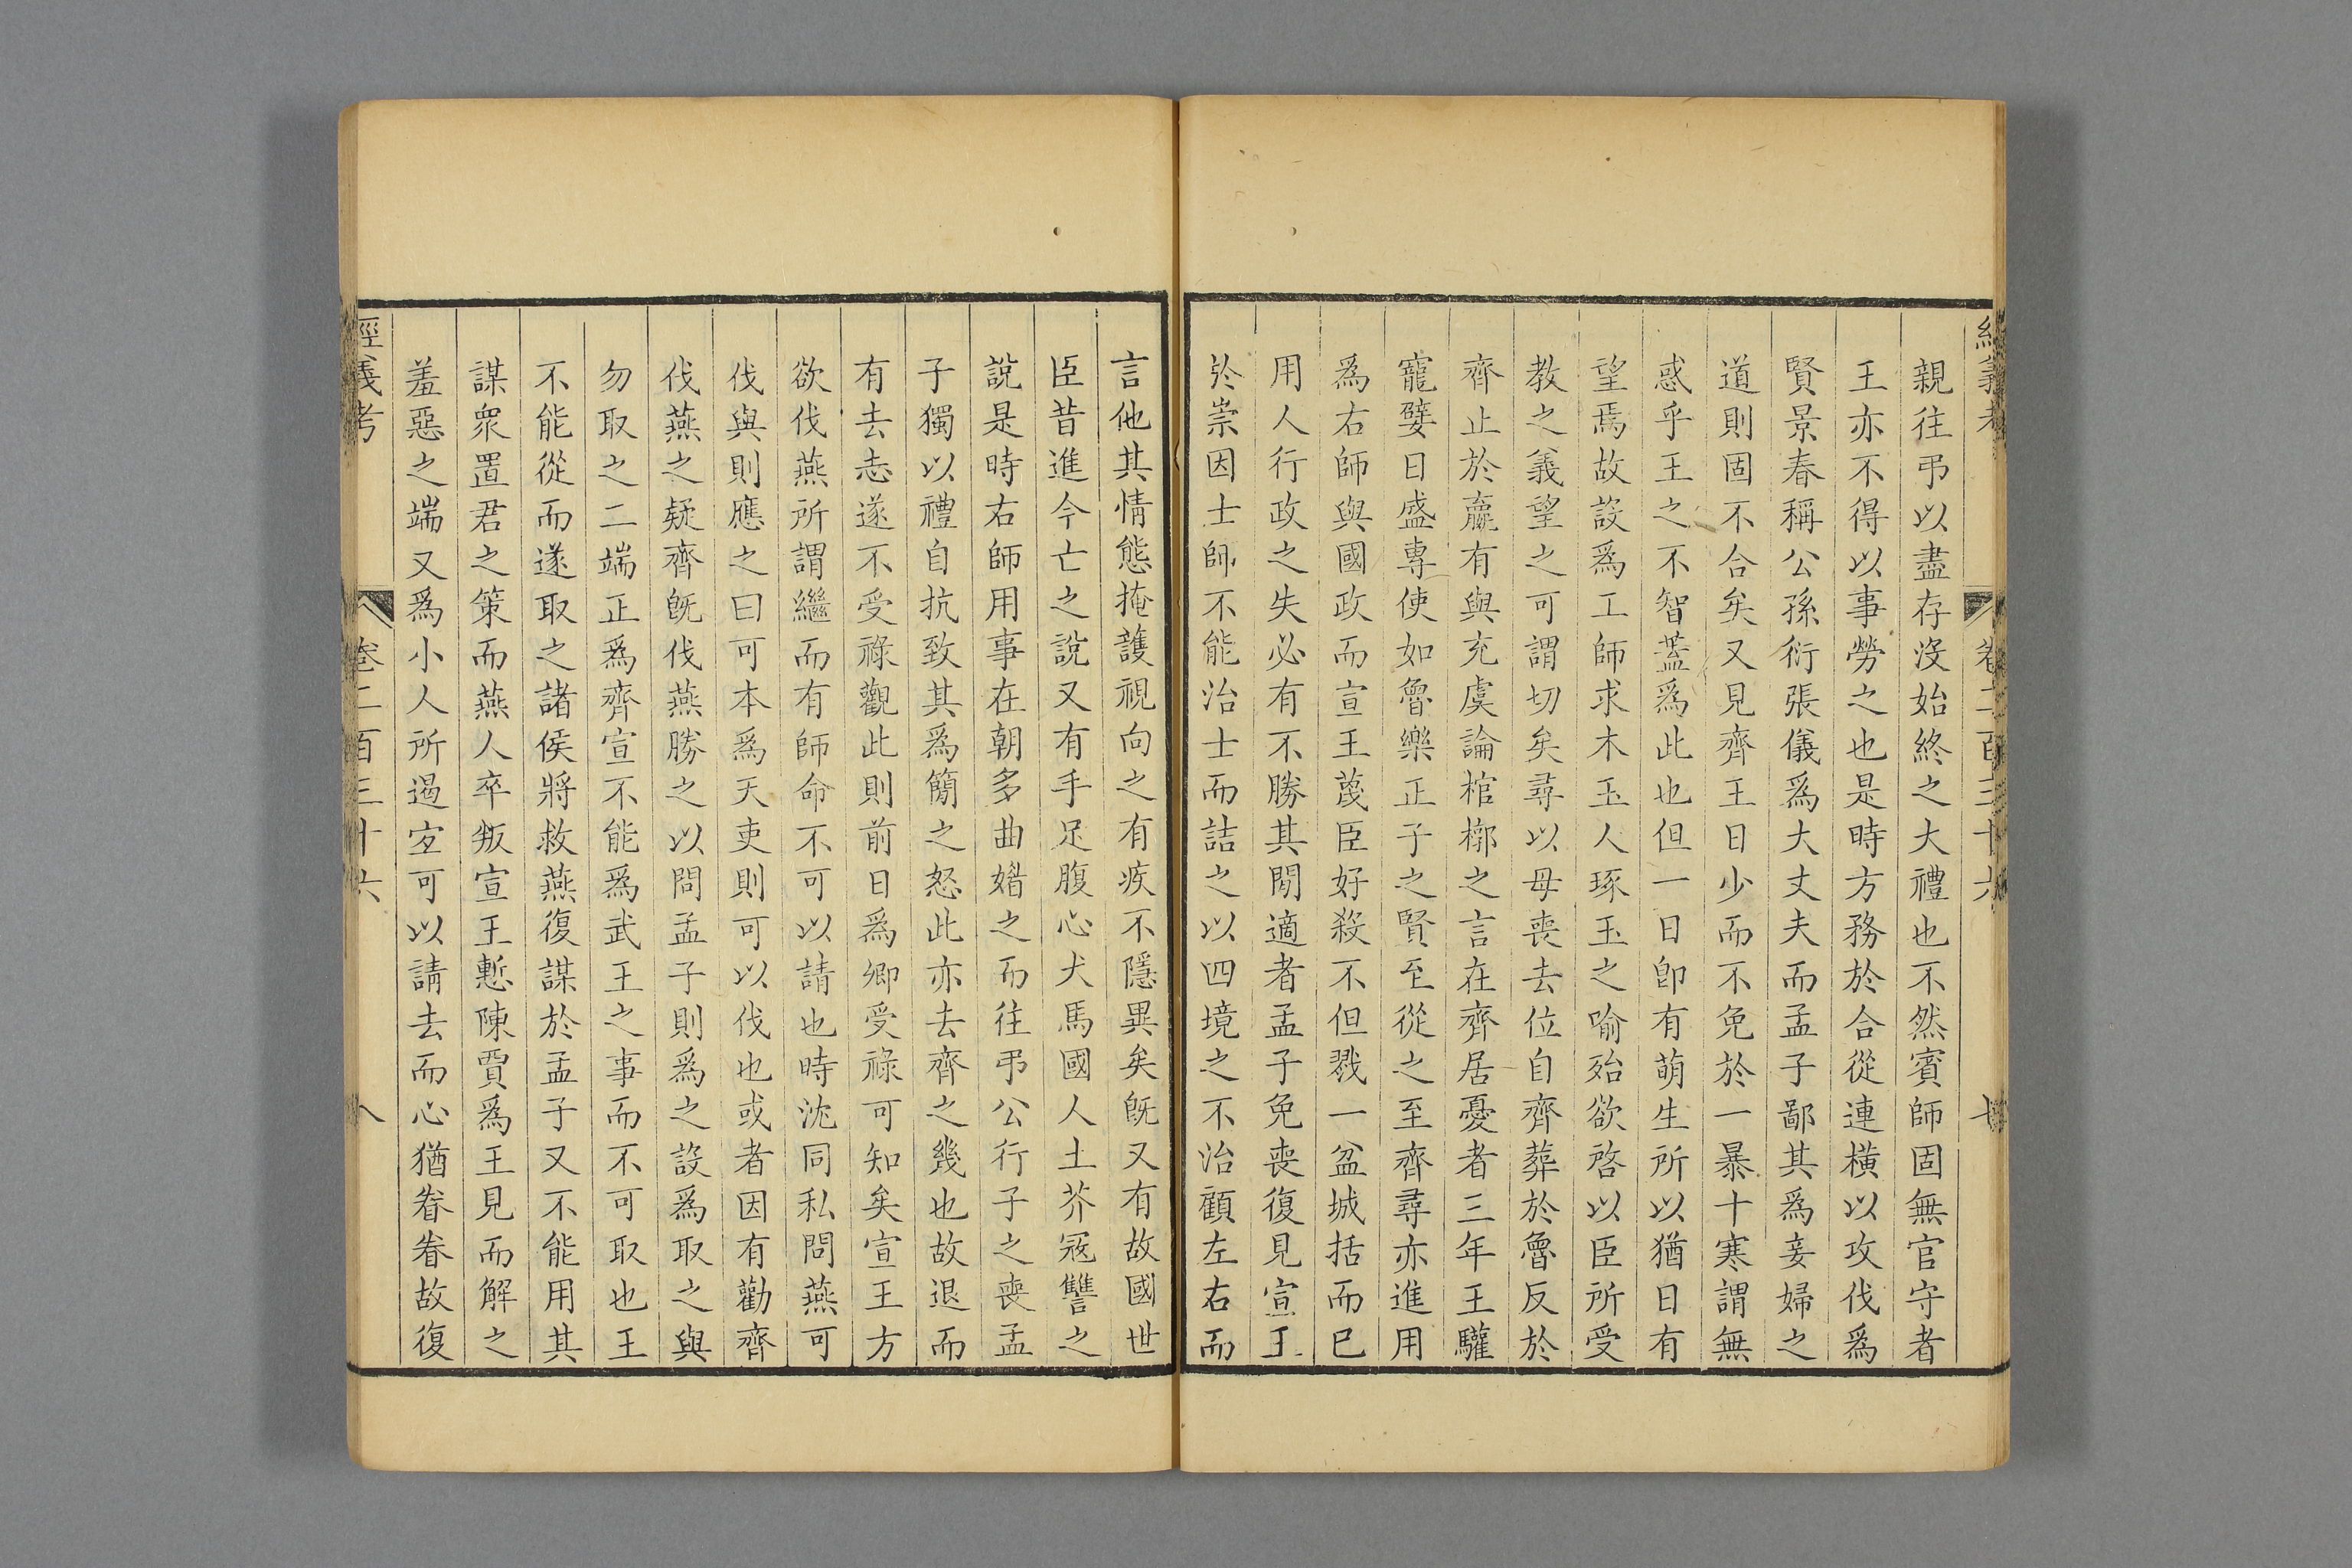 經義考 卷二百三十六 七
親往弔以盡存沒始終之大禮也不然賓師固無官守者
王亦不得以事勞之也是時方務於合從連橫以攻伐爲
賢景春稱公孫衍張儀爲大丈夫而孟子鄙其爲妾婦之
道則固不合矣又見齊王日少而不免於一暴十寒謂無
惑乎王之不智蓋爲此也但一日卽有萌生所以猶日有
望焉故設爲工師求木玉人琢玉之喻殆欲啓以臣所受
教之義望之可謂切矣尋以母喪去位自齊葬於魯反於
齊止於嬴有與充虞論棺槨之言在齊居憂者三年王驩
寵嬖日盛專使如魯樂正子之賢至從之至齊尋亦進用
爲右師與國政而宣王蔑臣好殺不但戮一盆城括而已
用人行政之失必有不勝其閒適者孟子免喪復見宣王
於崇因士師不能治士而詰之以四境之不治顧左右而
言他其情態掩護視向之有疾不隱異矣旣又有故國世
臣昔進今亡之說又有手足腹心犬馬國人土芥冦讐之
說是時右師用事在朝多曲媚之而往弔公行子之喪孟
子獨以禮自抗致其爲簡之怒此亦去齊之幾也故退而
有去志遂不受祿觀此則前日爲卿受祿可知矣宣王方
欲伐燕所謂繼而有師命不可以請也時沈同私問燕可
伐與則應之曰可本爲天吏則可以伐也或者因有勸齊
伐燕之疑齊旣伐燕勝之以問孟子則爲之設爲取之與
勿取之二端正爲齊宣不能爲武王之事而不可取也王
不能從而遂取之諸侯將救燕復謀於孟子又不能用其
謀衆置君之策而燕人卒叛宣王慙陳賈爲王見而解之
羞惡之端又爲小人所遏宐可以請去而心猶眷眷故復
經義考 卷二百三十六 八